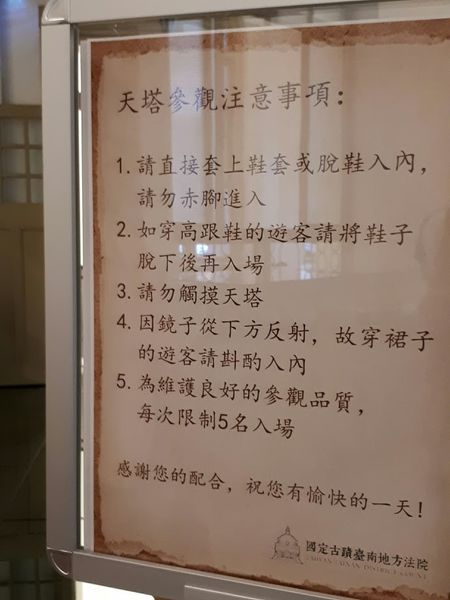 天塔參觀注意事項：
1. 請直接套上鞋套或脫鞋入內，
請勿赤腳進入
2. 如穿高跟鞋的遊客請將鞋子
脫下後再入場
3. 請勿觸摸天塔
4. 因鏡子從下方反射，故穿裙子
的遊客請斟酌入內
5. 為維護良好的參觀品質，
每次限制5名入場
感謝您的配合，祝您有愉快的一天!
國定古蹟臺南地方法院